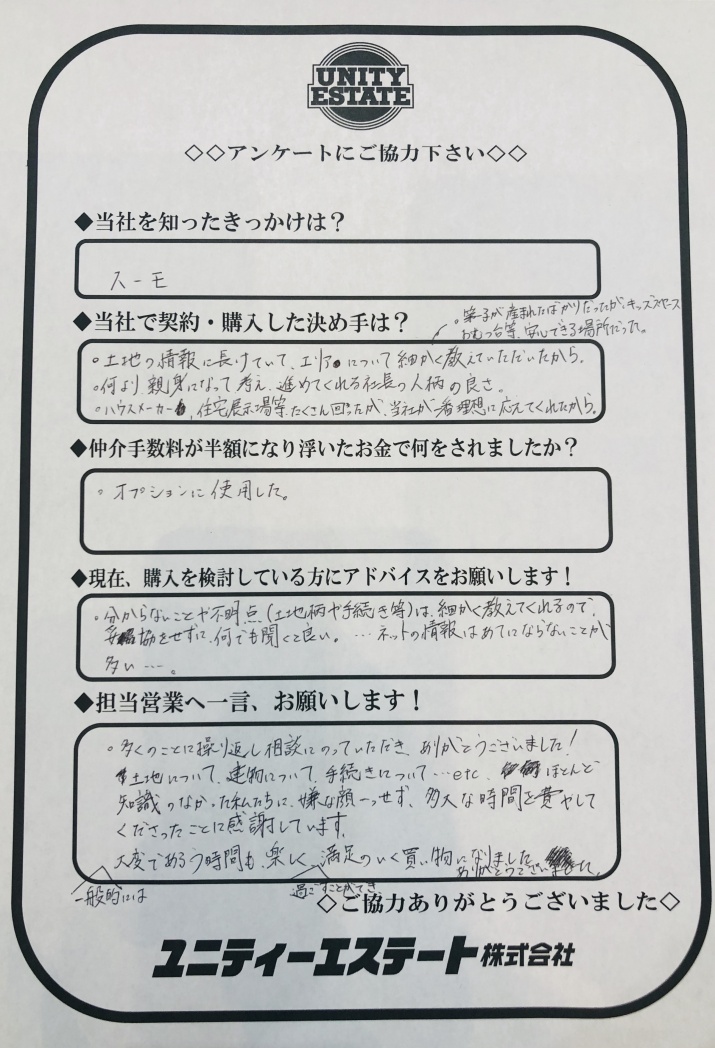 UNITY
ESTATE
◇◇アンケートにご協力下さい◇◇
◆当社を知ったきっかけは？
スーモ
◆当社で契約・購入した決め手は？
。第一子が産まれたばかりだったが、キッズスペース
おむつ台等、安心できる場所だった。
。土地の情報に長けていて、エリアについて細かく教えていただいたから。
。何より、親身になって考え、進めてくれる社長の人柄の良さ。
。ハウスメーカー、住宅展示場等、たくさん回ったが、当社が一番理想に応えてくれたから。
◆仲介手数料が半額になり浮いたお金で何をされましたか？
。オプションに使用した。
◆現在、購入を検討している方にアドバイスをお願いします！
。分からないことや不明点(土地柄や手続き等)は、細かく教えてくれるので、
妥協をせずに、何でも聞くと良い。…ネットの情報はあてにならないことが
多い…。
◆担当営業へ一言、お願いします！
。多くのことに繰り返し相談にのっていただき、ありがとうございました！
土地について、建物について、手続きについて…etc、ほとんど
知識のなかった私たちに、嫌な顔一つせず、多大な時間を費やして
くださったことに感謝しています。
大変であろう時間も、楽しく、満足のいく買い物になりました。
ありがとうござい した。
一般的には
過ごすことができ、
◇ご協力ありがとうございました◇
ユニティーエステート株式会社